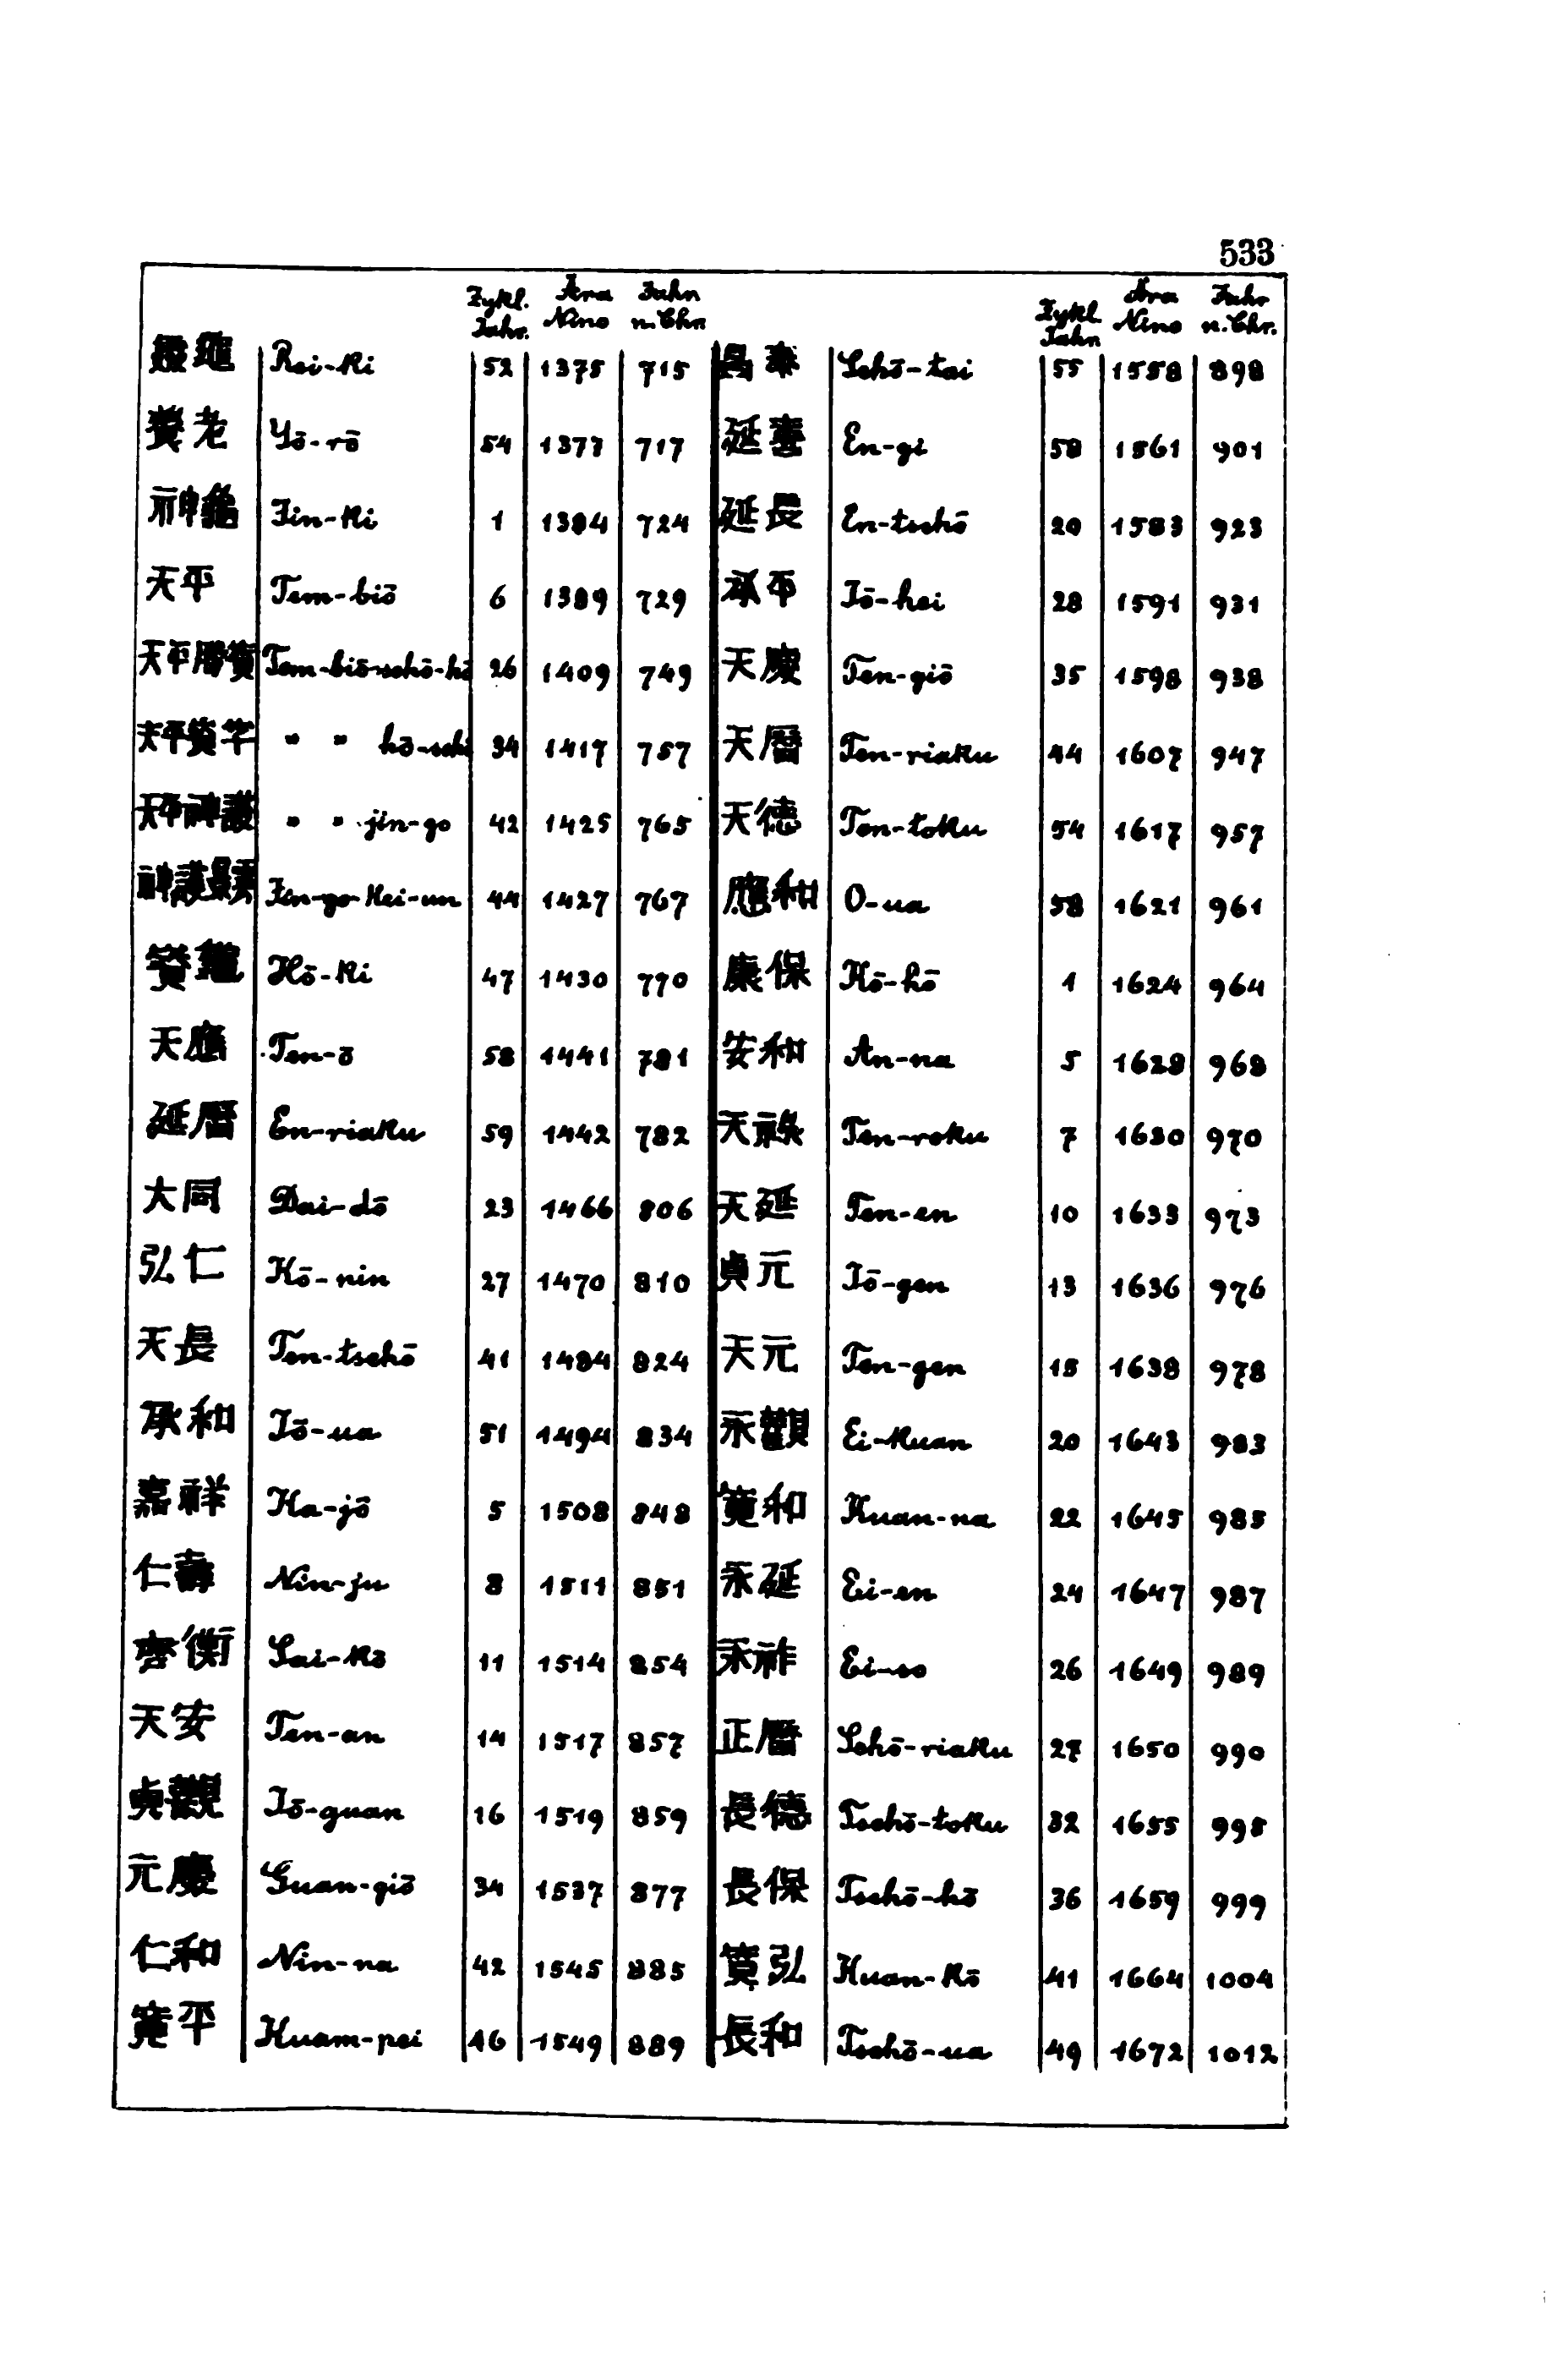 533
Zykl. Jahr. Ära Nino Jahr n. Chr. Zykl. Jahr Ära Nino Jahr n. Chr.
靈龜 Rei-ki 52 1375 715 昌泰 Schō-tai 55 1558 898
養老 Yō-rō 54 1377 717 延喜 En-gi 58 1561 901
神龜 Jin-ki 1 1384 724 延長 En-tschō 20 1583 923
天平 Tem-biō 6 1389 729 承平 Jō-hei 28 1591 931
天平勝寳 Tem-biō-schō-hō 26 1409 749 天慶 Ten-giō 35 1598 938
天平寳字 " " hō-schi 34 1417 757 天曆 Ten-riaku 44 1607 947
天平神護 " " jin-go 42 1425 765 天德 Ten-toku 54 1617 957
神護景雲 Jin-go-kei-un 44 1427 767 應和 O-ua 58 1621 961
寳龜 Hō-ki 47 1430 770 康保 Kō-hō 1 1624 964
天應 Ten-ō 58 1441 781 安和 An-na 5 1628 968
延曆 En-riaku 59 1442 782 天祿 Ten-roku 7 1630 970
大同 Dai-dō 23 1466 806 天延 Ten-en 10 1633 973
弘仁 Kō-nin 27 1470 810 貞元 Jō-gen 13 1636 976
天長 Ten-tschō 41 1484 824 天元 Ten-gen 15 1638 978
承和 Jō-ua 51 1494 834 永觀 Ei-kuan 20 1643 983
嘉祥 Ka-jō 5 1508 848 寬和 Kuan-na 22 1645 985
仁壽 Nin-ju 8 1511 851 永延 Ei-en 24 1647 987
齊衡 Sai-kō 11 1514 854 永祚 Ei-so 26 1649 989
天安 Ten-an 14 1517 857 正曆 Schō-riaku 27 1650 990
貞觀 Jō-guan 16 1519 859 長德 Tschō-toku 32 1655 995
元慶 Guan-giō 34 1537 877 長保 Tschō-hō 36 1659 999
仁和 Nin-na 42 1545 885 寬弘 Kuan-kō 41 1664 1004
寬平 Kuam-pei 46 1549 889 長和 Tschō-ua 49 1672 1012